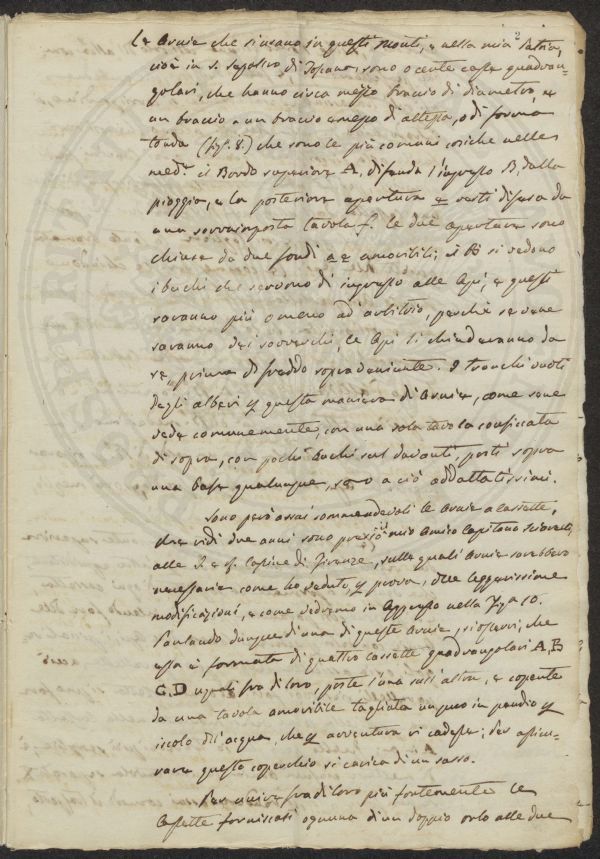 2
Le Arnie che si usano in questi Monti, e nella mia Patria,
cioè in S. Sepolcro di Toscana, sono o certe casse quadran-
golari, che hanno circa mezzo braccio di diametro, e
un braccio a un braccio e mezzo di altezza, o di forma
tonda (fig. 8.) che sono le più comuni cosiche nelle
med.e il Bordo superiore A, difenda l'ingresso B, dalla
pioggia, e la posteriore apertura e resti difesa da
una sovrimposta tavola f. le due aperture sono
chiuse da due fondi a e amovibili; in B si vedono
i buchi che servono di ingresso alle Api, e questi
saranno più o meno ad'arbitrio, perchè se vene
saranno dei soverchi, le Api li chiuderanno da
se, prima di freddo sopraveniente. I tronchi vuoti
degli alberi p questa maniera di Arnie, come sene
vede comunemente, con una sola tavola conficcata
di sopra, con pochi buchi sul davanti, posti sopra
una base qualunque, sono a ciò addattatissimi.
Sono però assai commendevoli le Arnie a cassette,
che vidi due anni sono presso il mio Amico Capitano
alle I. e R. Cascine di Firenze, sulle quali Arnie sarebbero
necessarie come ho veduto p prova, due leggerissime
modificazioni, e come vedremo in appresso nella
Parlando dunque di una di queste Arnie, si osservi, che
essa è formata di quattro cassette quadrangolari A, B
C, D uguali fra di loro, poste l'una sull'altra, e coperte
da una tavola amovibile tagliata un poco in pendio p
iscolo dell'acqua, che p avventura vi cadesse; per assicu-
rare questo coperchio si carica di un sasso.
Per unire fra di loro più fortemente le
Cassette forniscasi ognuna di un doppio orlo alle due